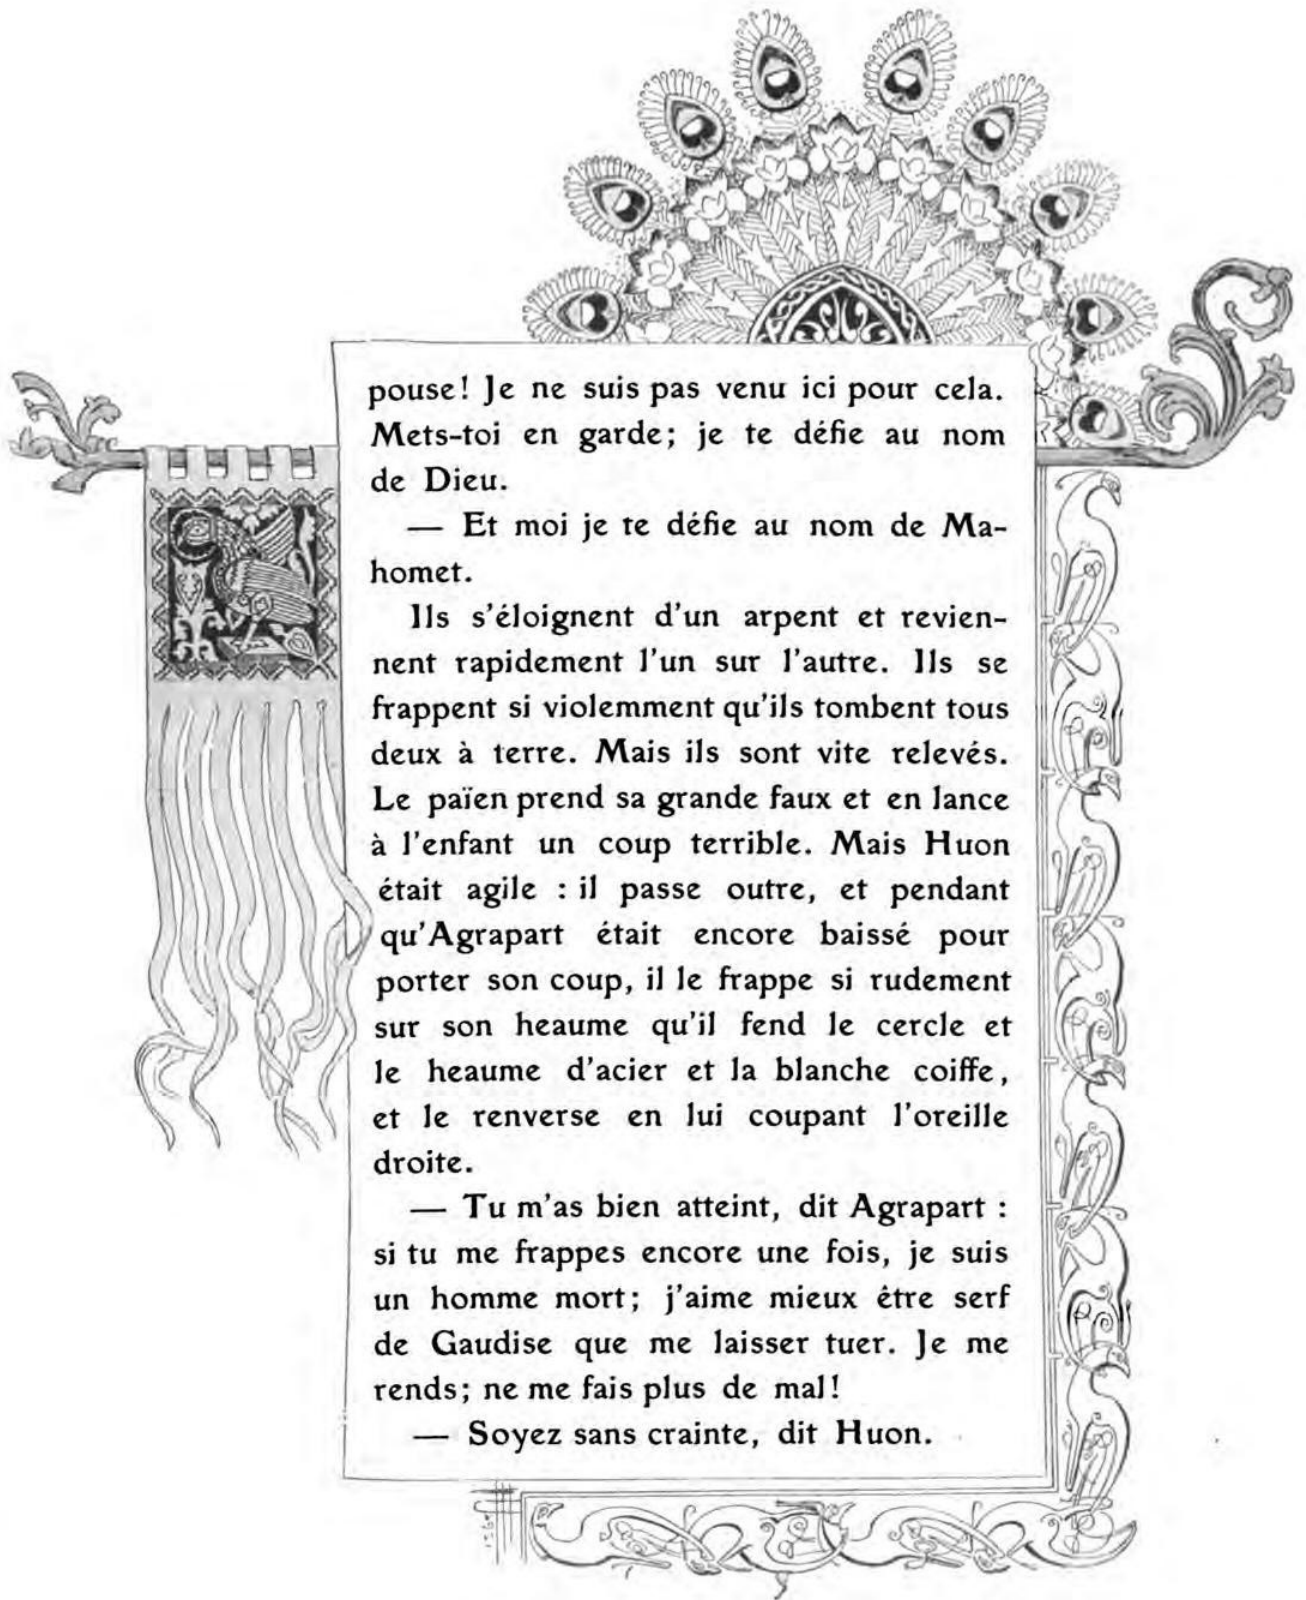 pouse! Je ne suis pas venu ici pour cela.
Mets-toi en garde; je te défie au nom
de Dieu.
— Et moi je te défie au nom de Ma-
homet.
Ils s'éloignent d'un arpent et revien-
nent rapidement l'un sur l'autre. Ils se
frappent si violemment qu'ils tombent tous
deux à terre. Mais ils sont vite relevés.
Le païen prend sa grande faux et en lance
à l'enfant un coup terrible. Mais Huon
était agile : il passe outre, et pendant
qu'Agrapart était encore baissé pour
porter son coup, il le frappe si rudement
sur son heaume qu'il fend le cercle et
le heaume d'acier et la blanche coiffe,
et le renverse en lui coupant l'oreille
droite.
— Tu m'as bien atteint, dit Agrapart :
si tu me frappes encore une fois, je suis
un homme mort; j'aime mieux être serf
de Gaudise que me laisser tuer. Je me
rends; ne me fais plus de mal!
— Soyez sans crainte, dit Huon.